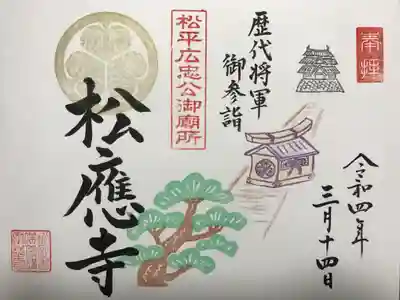 奉拝
歴代将軍
御参詣
松平広忠公御廟所
松應寺
令和四年
三月十四日